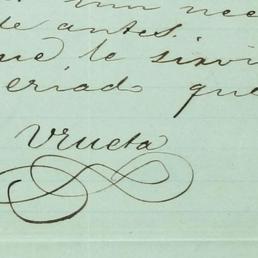 un nec
de antes.
que le sirvi
criado que
Urueta